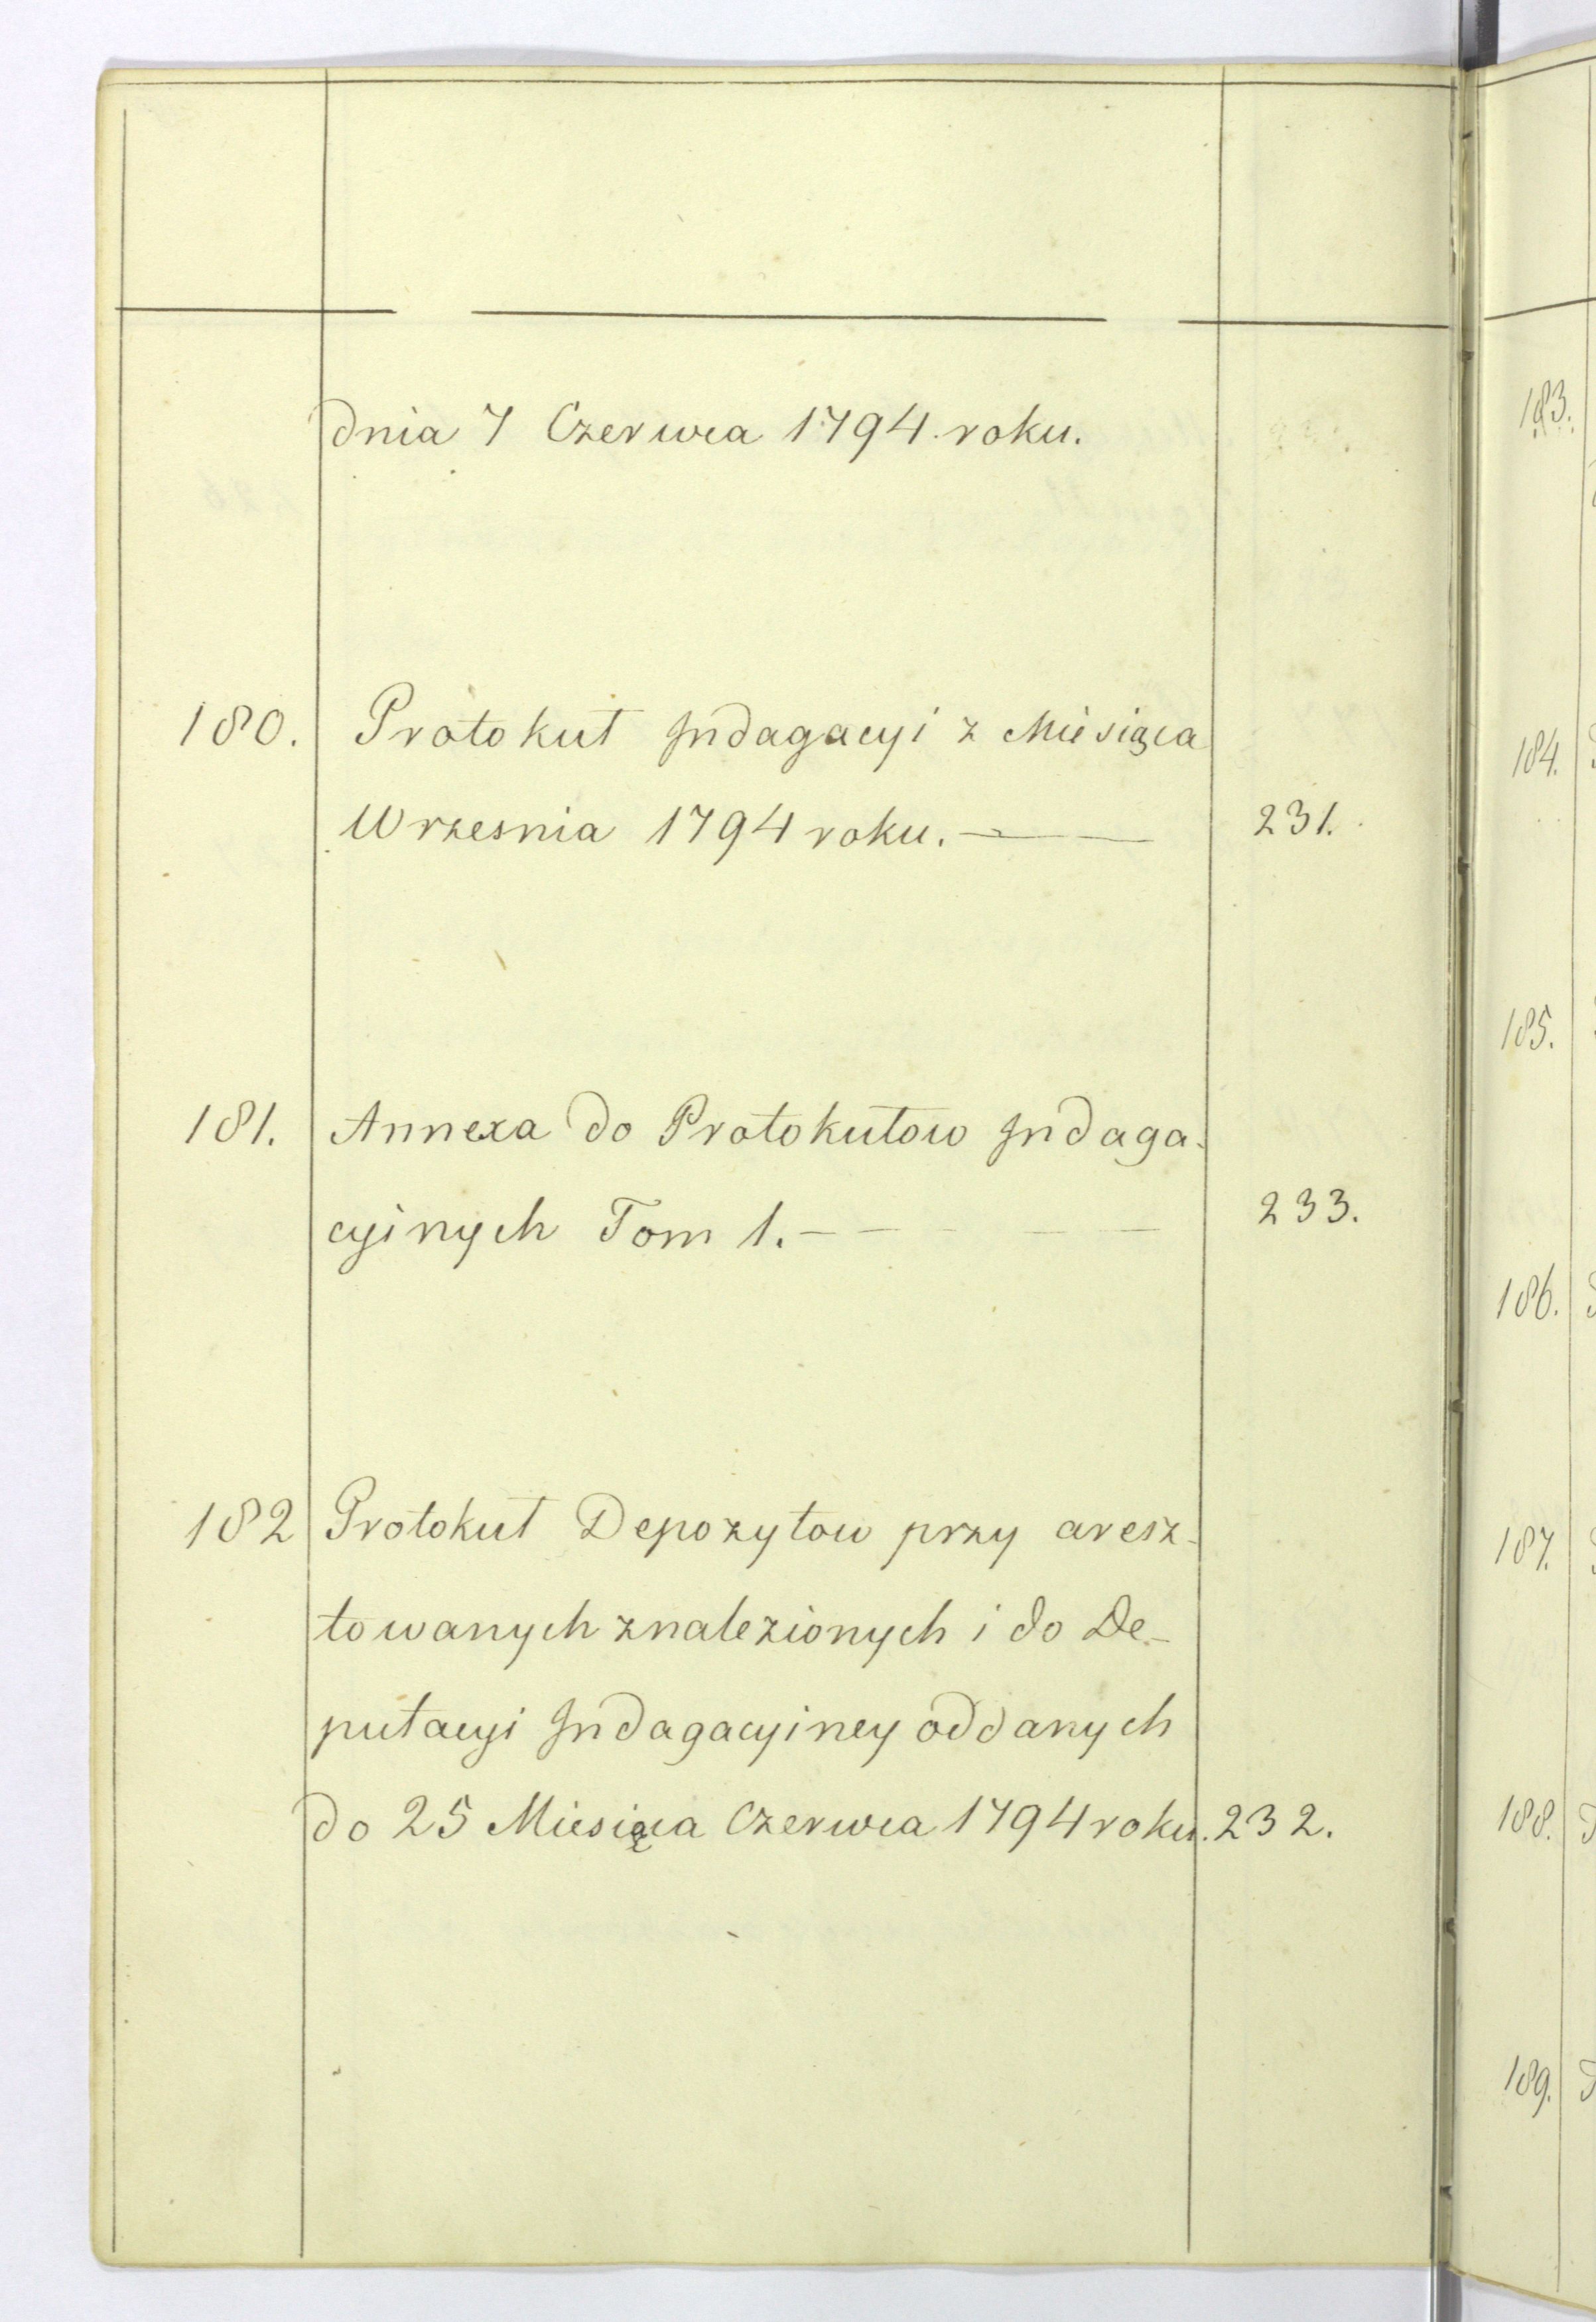 dnia 7 Czerwca 1794 roku.
180. Protokuł Indagacyi z Miesiąca
Wrzesnia 1794 roku. — 231.
181. Annexa do Protokułow Indaga-
cyinych Tom 1. — — — — 233.
182 Protokuł Depozytow przy aresz-
towanych znalezionych i do De-
putacyi Indagacyiney oddanych
do 25 Miesiąca Czerwca 1794 roku. 232.
183.
184.
185.
186.
187.
188.
189.